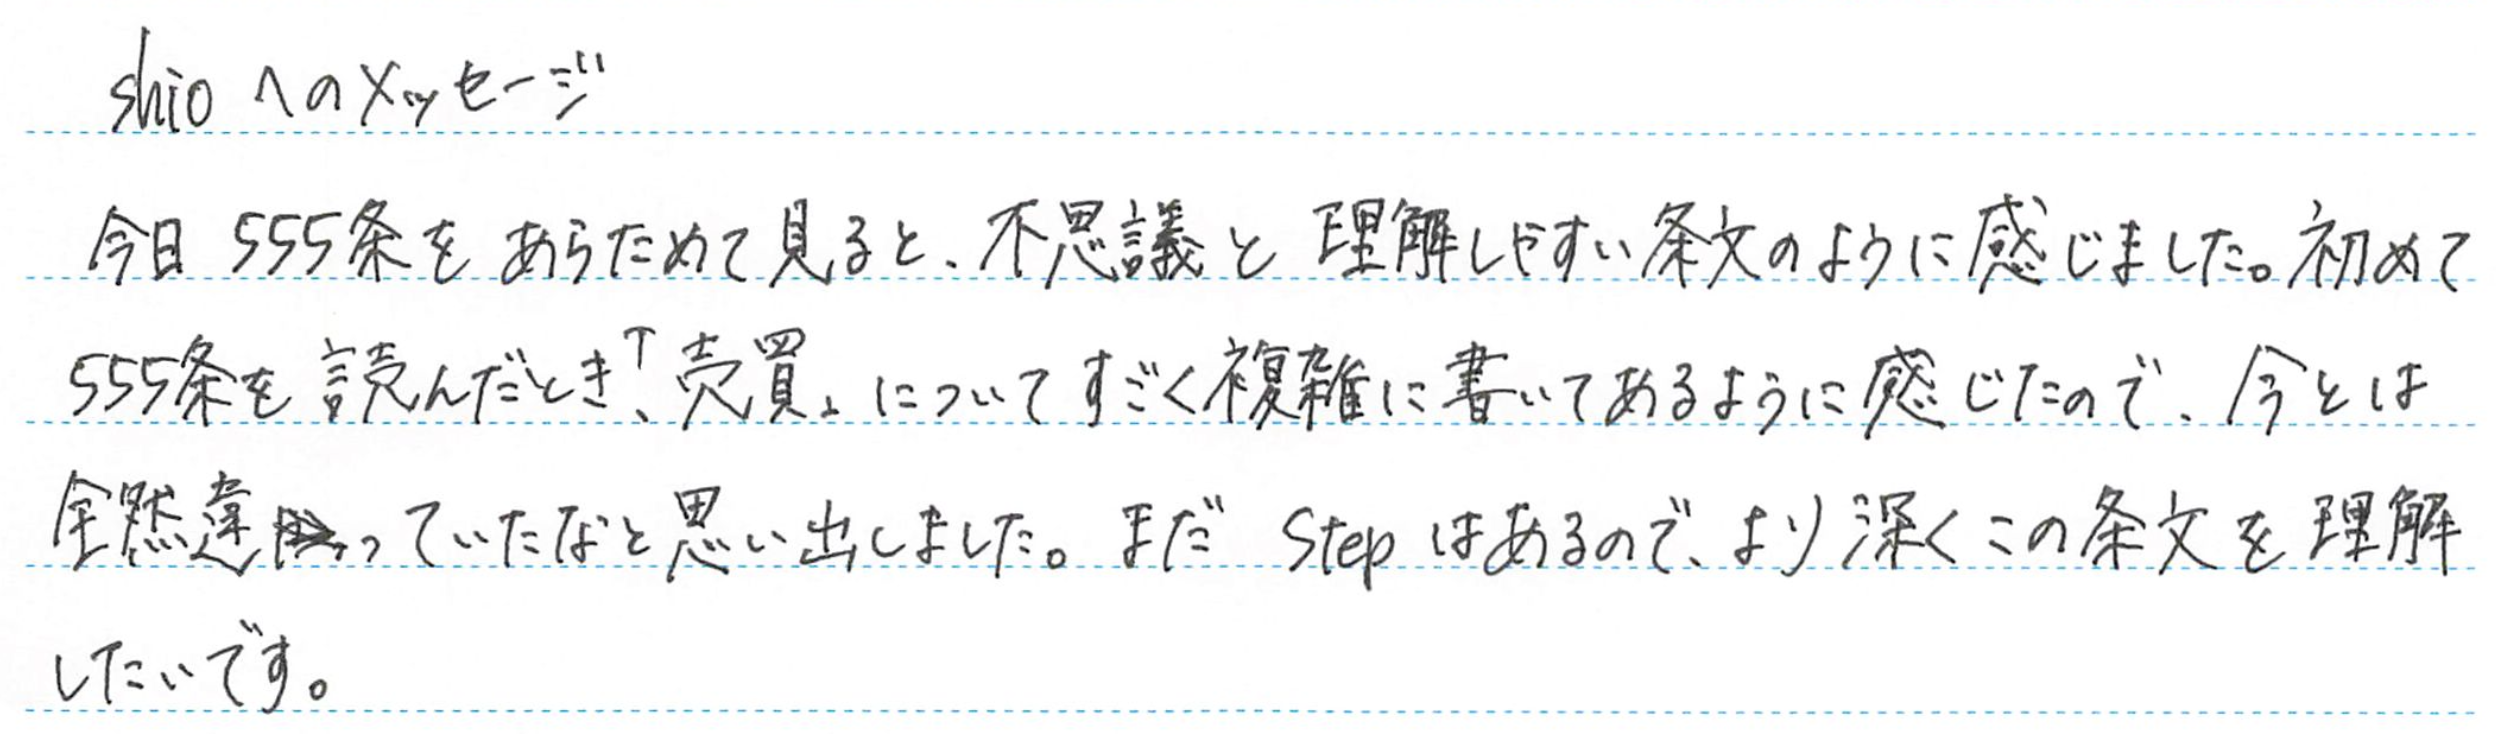 shioへのメッセージ
今日555条をあらためて見ると、不思議と理解しやすい条文のように感じました。初めて
555条を読んだとき、「売買」についてすごく複雑に書いてあるように感じたので、今とは
全然違っていたなと思い出しました。まだStepはあるので、より深くこの条文を理解
したいです。